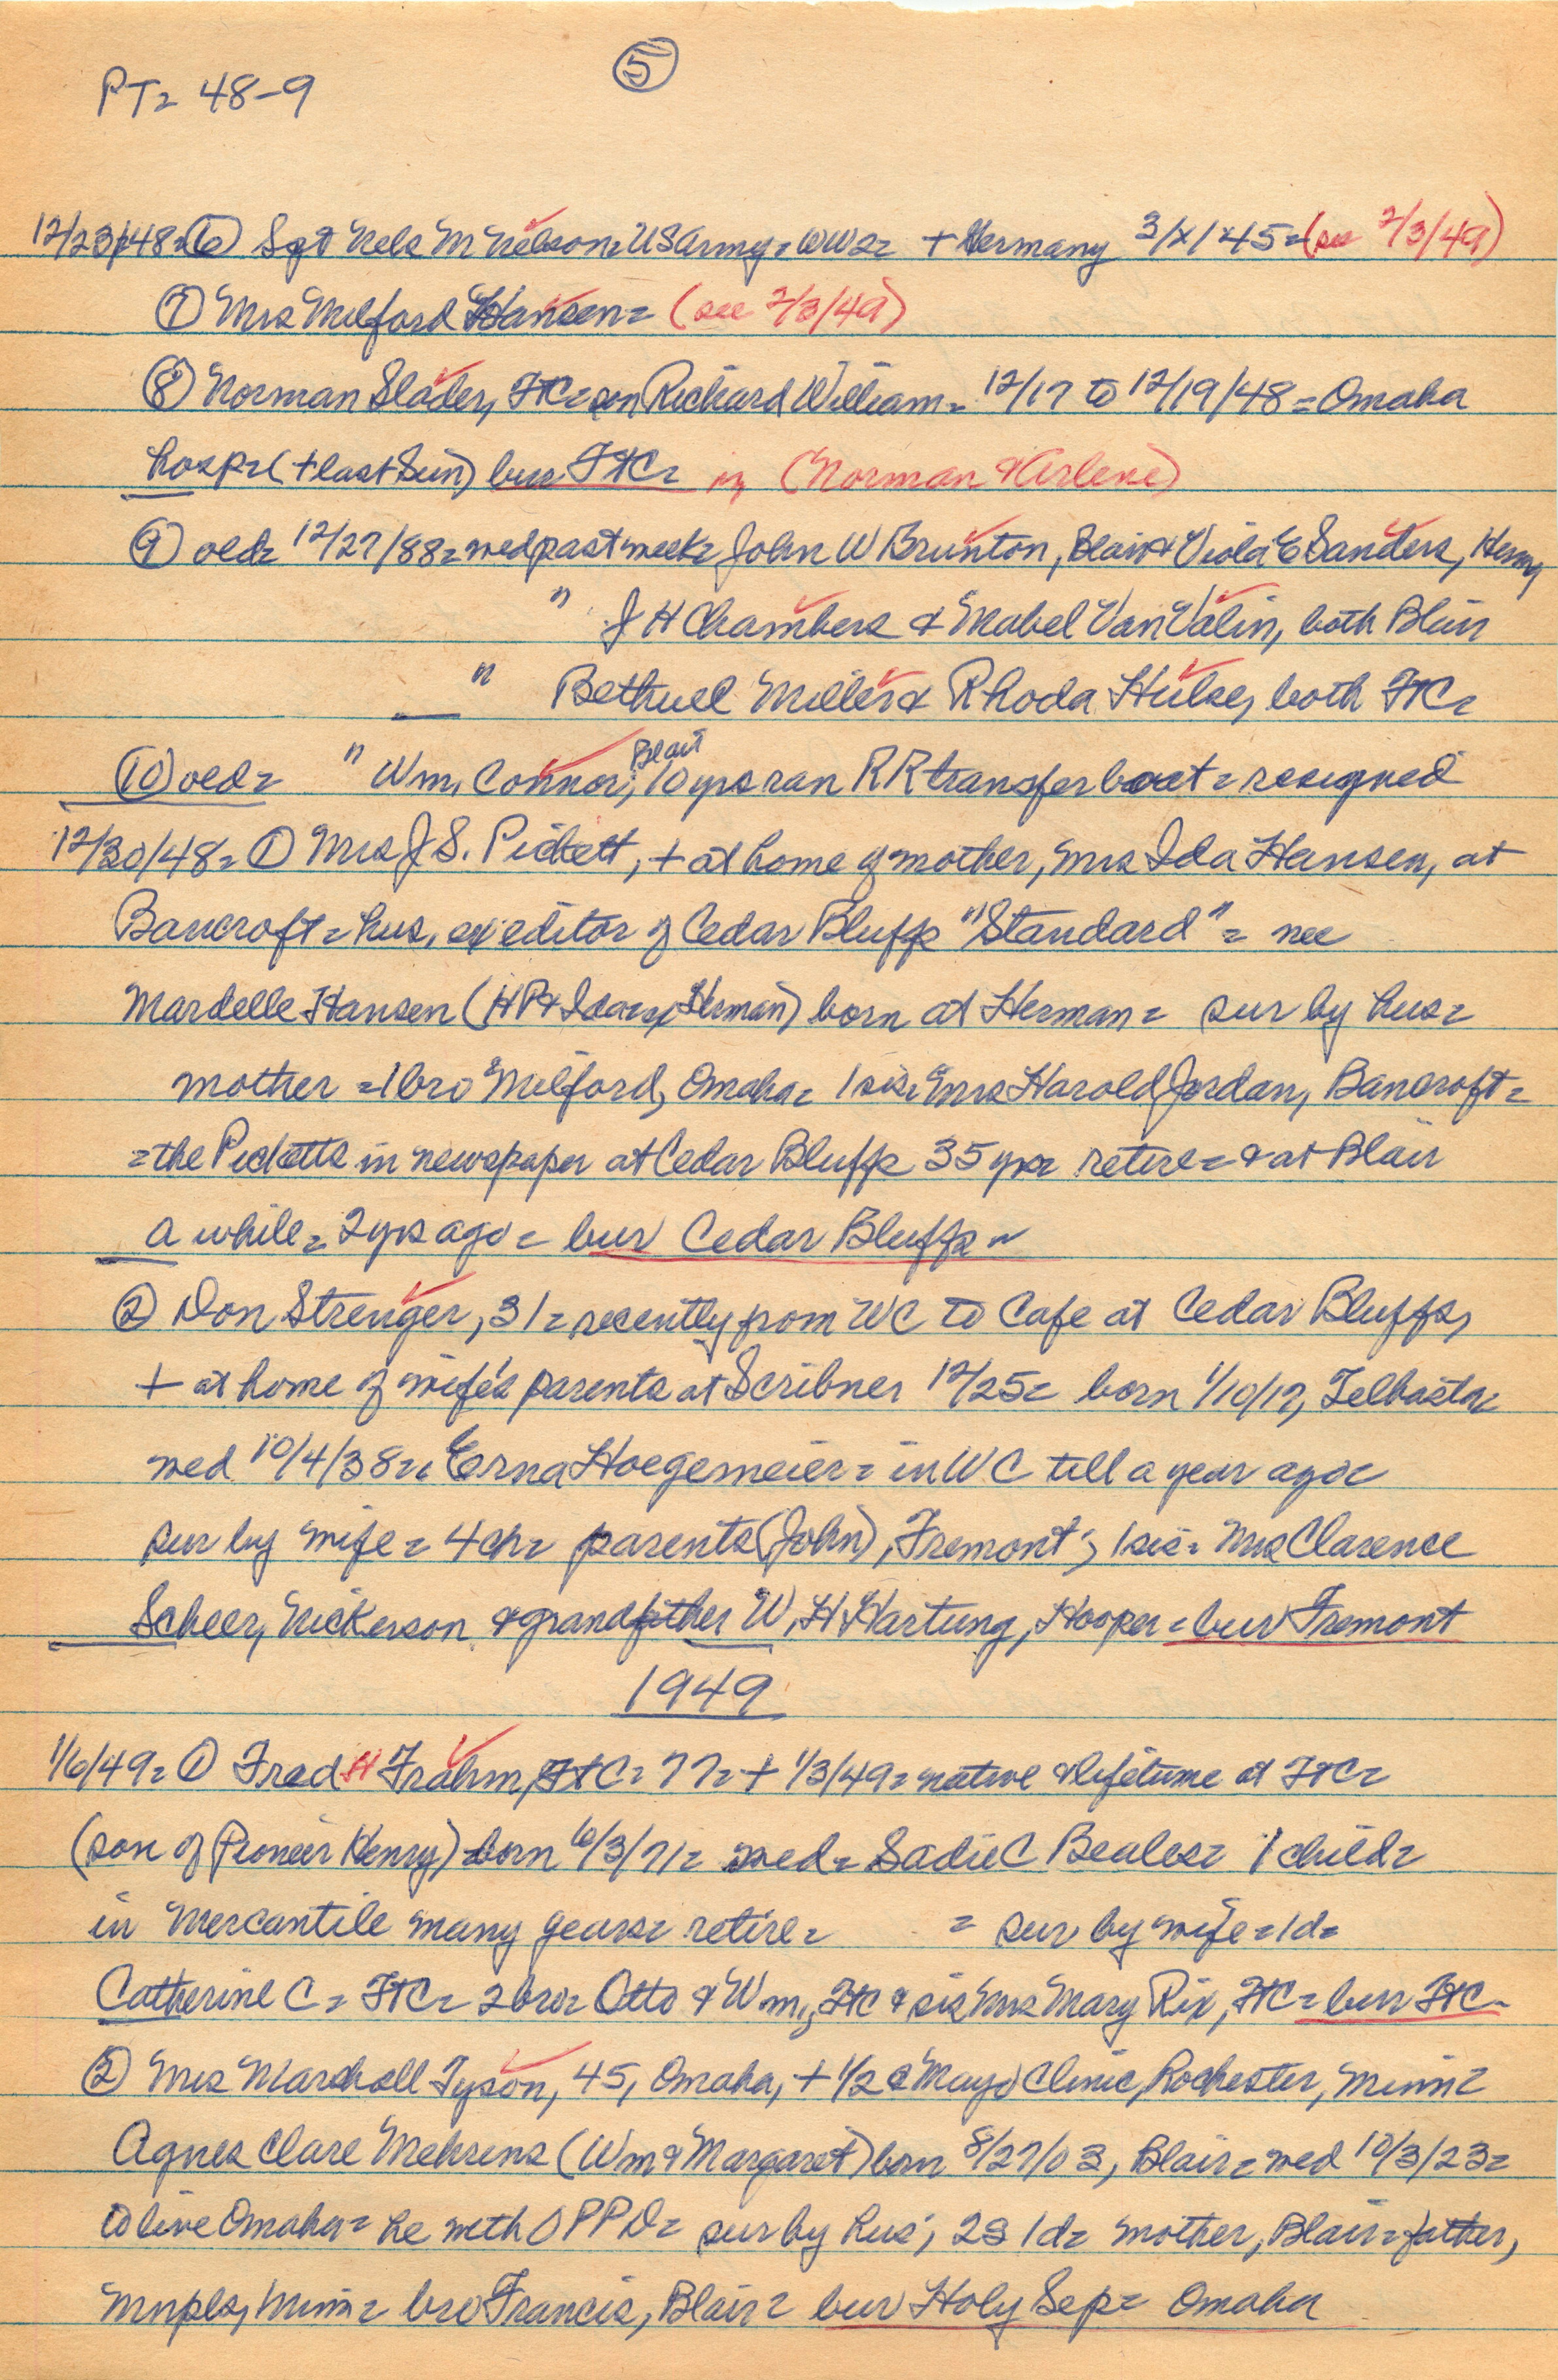 PT= 48-9
5
12/23/48= 6 Sgt Nels M Nelson= US Army= WW2= + Germany 3/x/45= (see 2/3/49)
7 Mrs Milford Hansen= (see 2/3/49)
8 Norman Slader, FtC= son Richard William= 12/17 to 12/19/48= Omaha
hosp= (+ last Sun) bur FtC= (Norman & Arlene)
9 old= 12/27/88= wed past week= John W Brunton, Blair & Viola E Sanders, Herman
" J H Chambers & Mabel Van Valin, both Blair
" Bethuel Miller & Rhoda Hulse, both FtC=
10 old= " Wm. Connor, Blair 10 yrs ran RR transfer boat= resigned
12/30/48= 1 Mrs J S. Pickett, + at home of mother, Mrs Ida Hansen, at
Bancroft= hus. ex editor of Cedar Bluffs "Standard"= nee
Mardelle Hansen (HP & Ida= Herman) born at Herman= sur by hus=
mother = 1 bro Milford, Omaha= 1 sis= Mrs Harold Jordan, Bancroft=
= the Picketts in newspaper at Cedar Bluffs 35 yrs= retire= & at Blair
a while= 2 yrs ago= bur Cedar Bluffs
2 Don Strenger, 31= recently from WC to Cafe at Cedar Bluffs,
+ at home of wife's parents at Scribner 12/25= born 1/10/17, Telbasta=
wed 10/4/38= Erna Hoegemeier= in WC till a year ago=
sur by wife= 4 ch= parents (John), Fremont; 1 sis= Mrs Clarence
Scheer, Nickerson & grandfather W. H Hartung, Hooper= bur Fremont
1949
1/6/49= 1 Fred H Frahm, FtC= 77= + 1/3/49= native & lifetime at FtC=
(son of Pioneer Henry) born 6/3/71= wed= Sadie C Beales= 1 child=
in Mercantile many years= retire= = sur by wife= 1d=
Catherine C= FtC= 2 bro= Otto & Wm, FtC & sis Mrs Mary Rix, FtC= bur FtC
2 Mrs Marshall Tyson, 45, Omaha, + 1/2 @ Mayo Clinic, Rochester, Minn=
Agnes Clare Mehrens (Wm & Margaret) born 8/27/03, Blair= wed 10/3/23=
to live Omaha= he with OPPD= sur by hus; 2s 1d= mother, Blair= father,
Mnpls, Minn= bro Francis, Blair= bur Holy Sep= Omaha